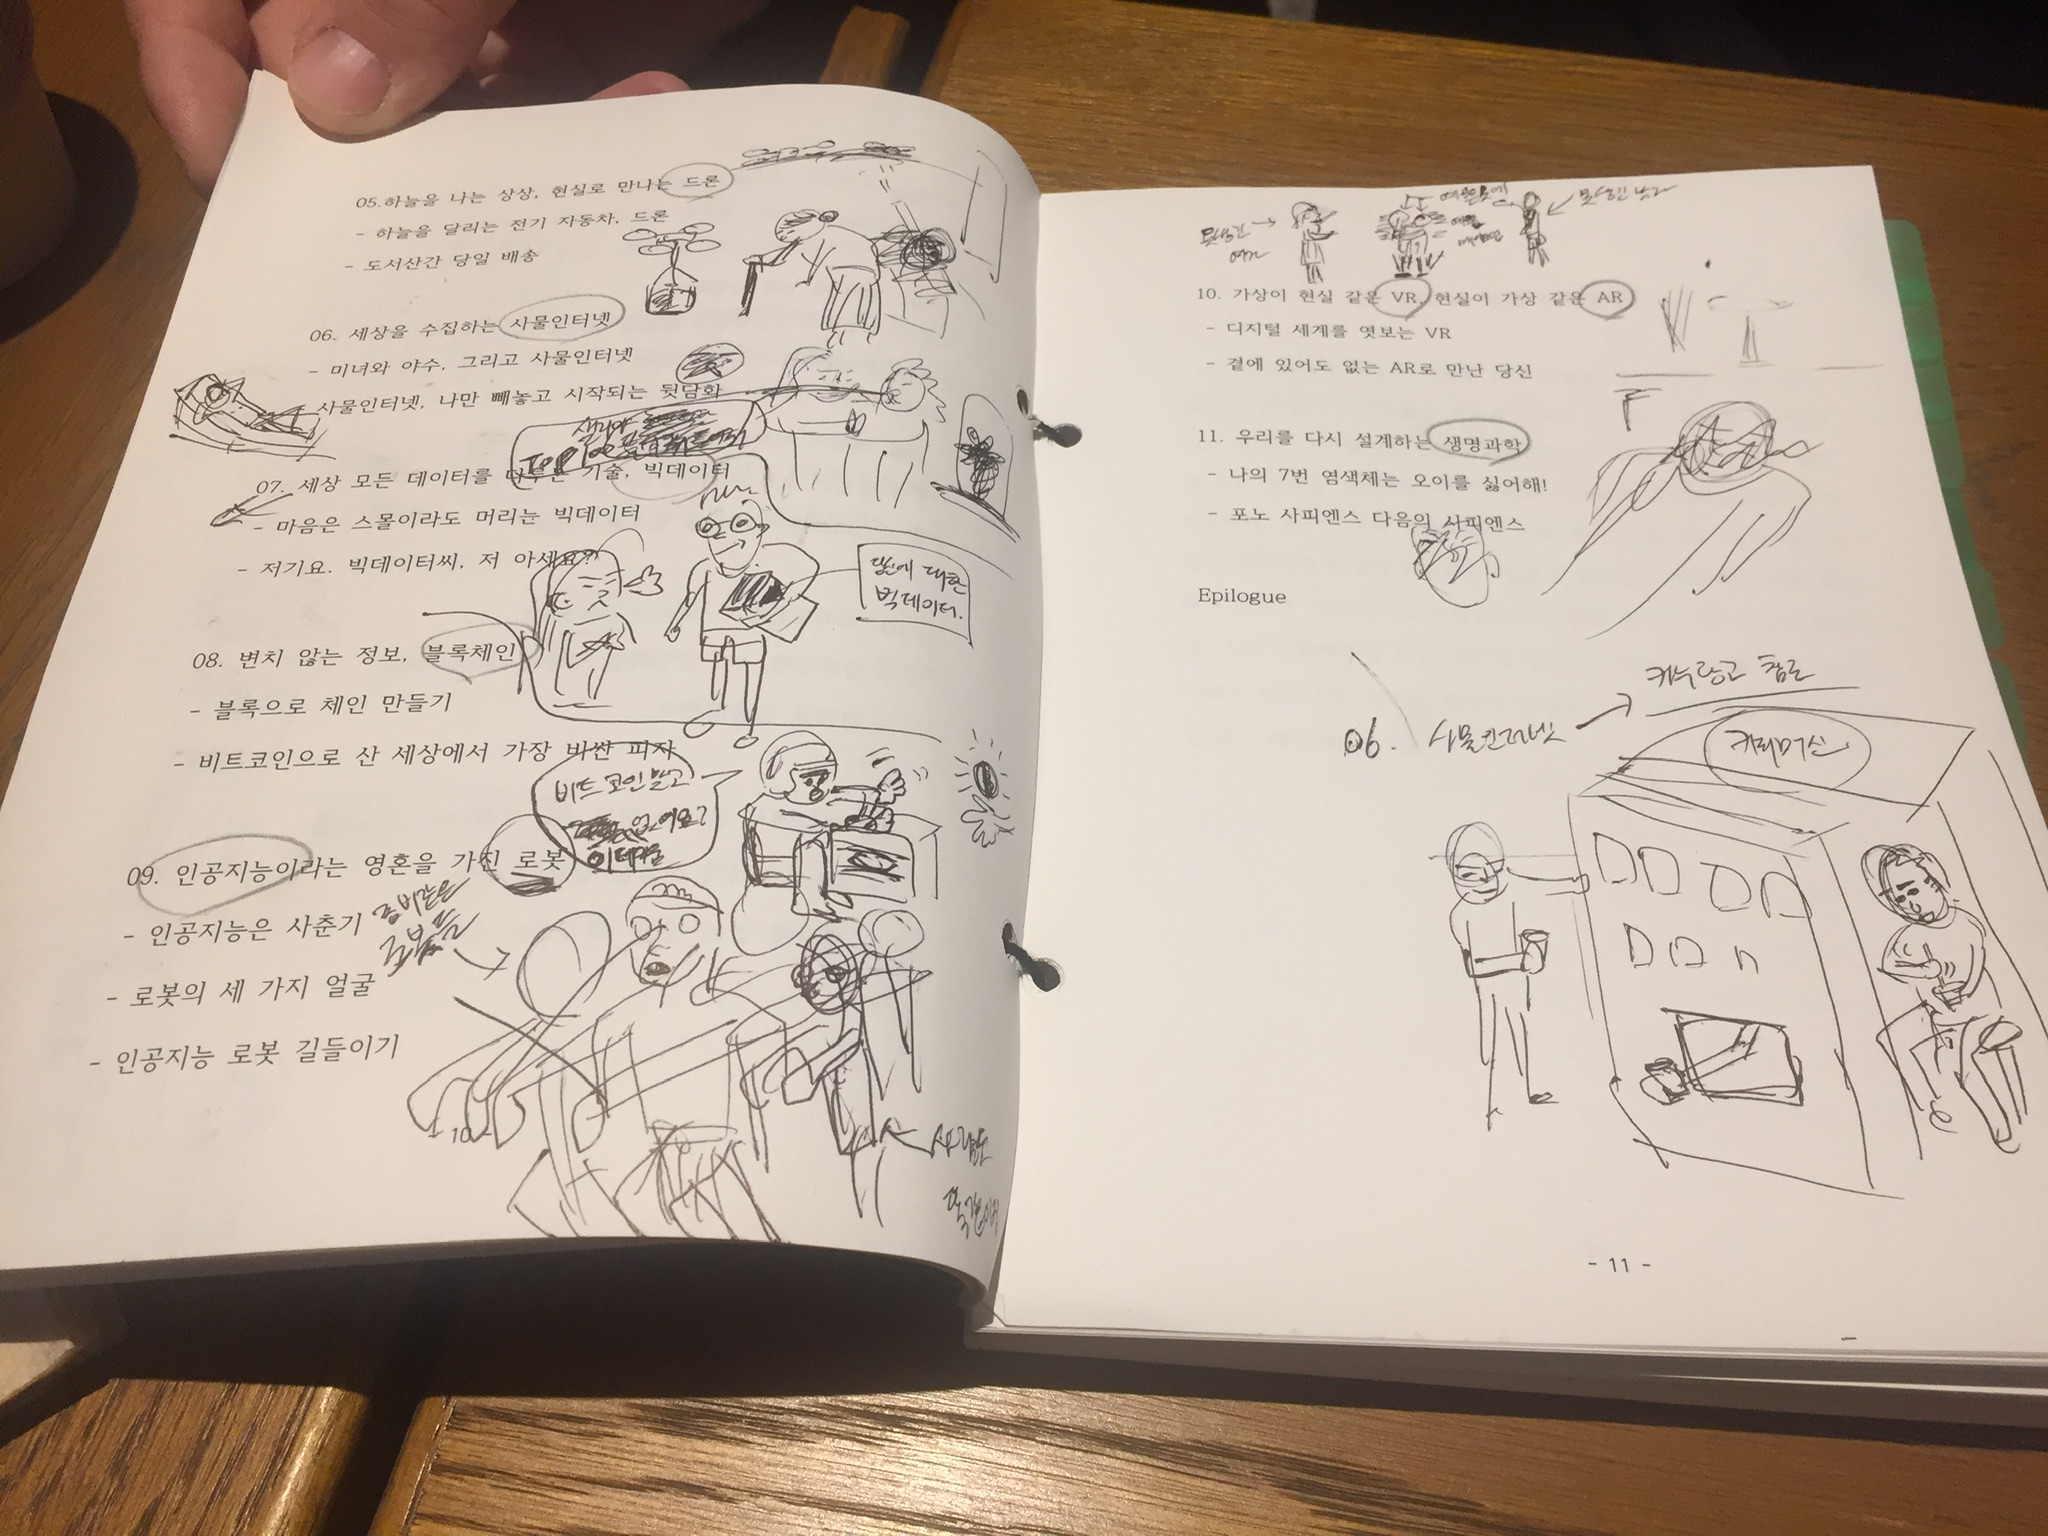 05.하늘을 나는 상상, 현실로 만나는 드론
- 하늘을 달리는 전기 자동차, 드론
- 도서산간 당일 배송
06. 세상을 수집하는 사물인터넷
- 미녀와 야수, 그리고 사물인터넷
사물인터넷, 나만 빼놓고 시작되는 뒷담화
샐리아
TOP100
07. 세상 모든 데이터를 다루는 기술, 빅데이터
- 마음은 스몰이라도 머리는 빅데이터
- 저기요. 빅데이터씨, 저 아세요?
당신에 대한
빅데이터.
08. 변치 않는 정보, 블록체인
- 블록으로 체인 만들기
- 비트코인으로 산 세상에서 가장 비싼 피자
비트코인 말고
없어요?
09. 인공지능이라는 영혼을 가진 로봇
좀비같은
로봇들
- 인공지능은 사춘기
- 로봇의 세 가지 얼굴
- 인공지능 로봇 길들이기
- 10 -
사람은
못생긴
여자
10. 가상이 현실 같은 VR, 현실이 가상 같은 AR
- 디지털 세계를 엿보는 VR
- 곁에 있어도 없는 AR로 만난 당신
11. 우리를 다시 설계하는 생명과학
- 나의 7번 염색체는 오이를 싫어해!
- 포노 사피엔스 다음의 사피엔스
Epilogue
06. 사물인터넷
커피머신
- 11 -